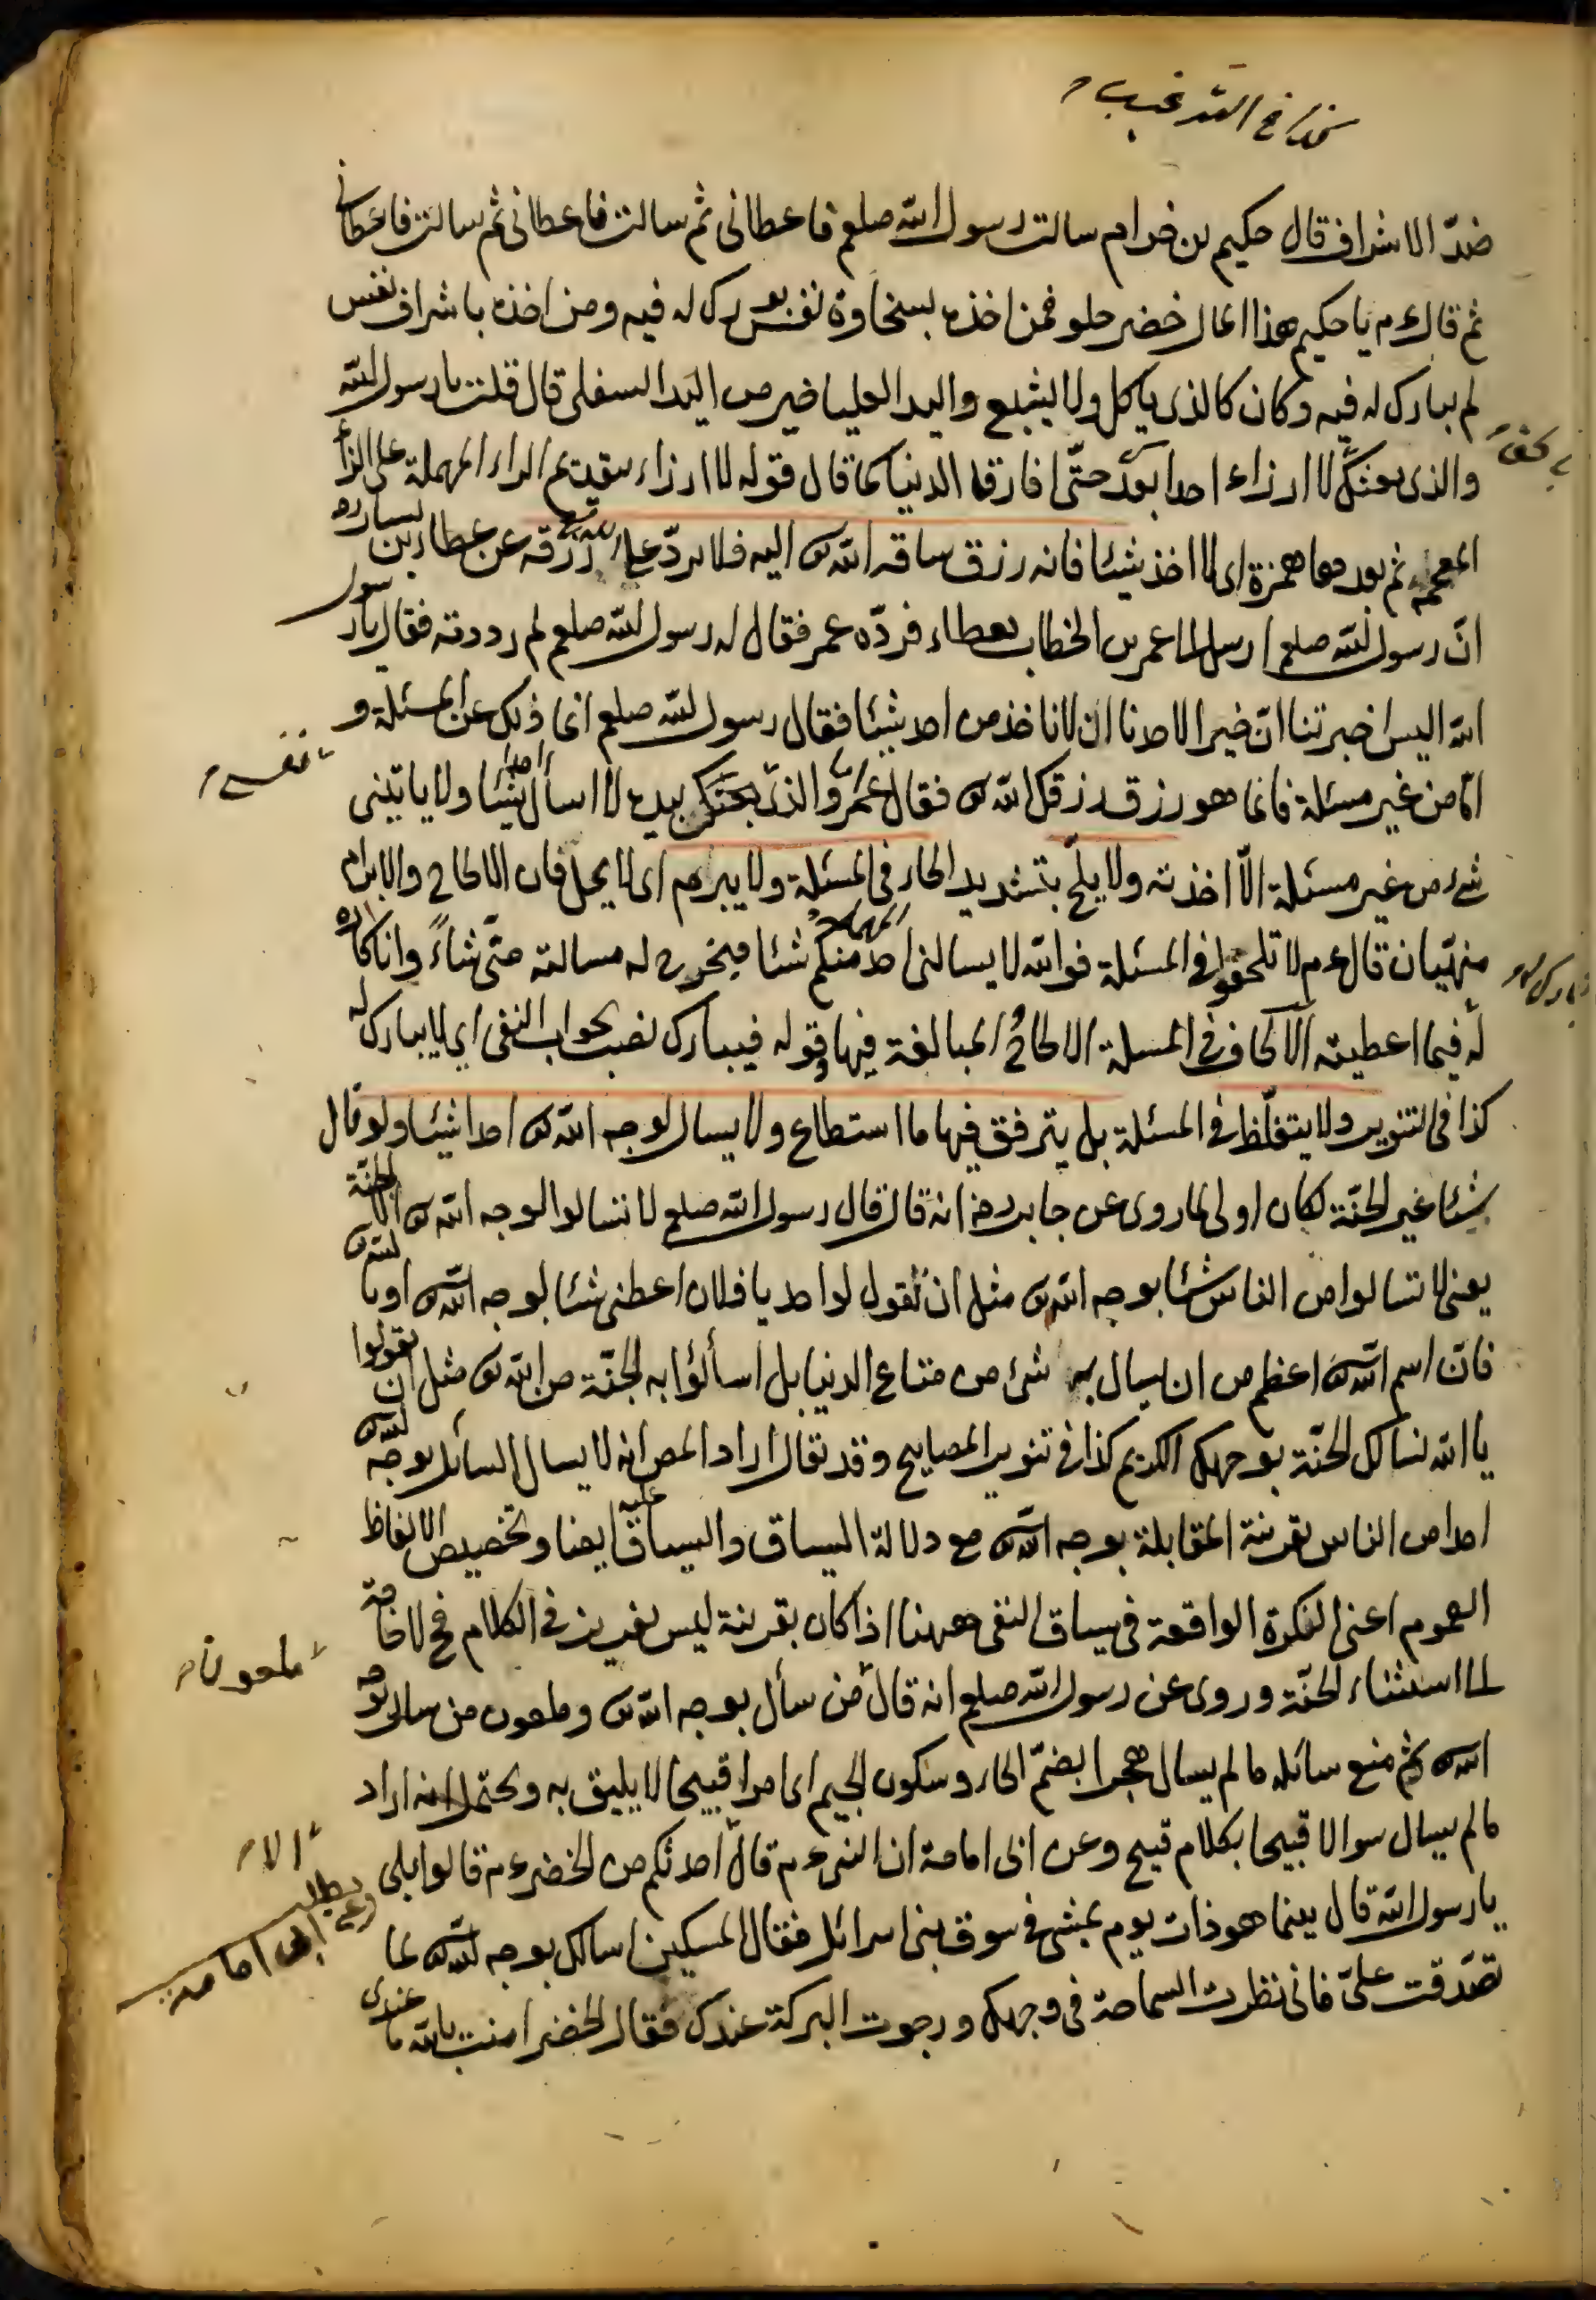 كذا في الترغيب
ضدّ الاشراف قال حكيم بن خرام سالت رسول الله صلعم فاعطانى ثم سالت فاعطانى ثم سالت فاعطانى
ثم قال عم يا حكيم هذا المال خضر حلو فمن اخذه بسخاوة نفس بورك له فيه ومن اخذه باشراف نفس
لم يبارك له فيه وكان كالذى ياكل ولا يشبع واليد العليا خير من اليد السفلى قال قلت يا رسول الله
والذى بعثك لا ارزاء احدا بعدك حتّى افارق الدنيا كما قال قوله لا ارزاء بتقديم الراء المهملة على الزاء
المعجمة ثم بعدها همزة اى لا اخذ شيئا فانه رزق ساقه الله تع اليه فلا يردّ على الله تع رزقه عن عطاء بن يسار رہ
انّ رسول الله صلعم ارسل الى عمر بن الخطاب بعطاء فردّه عمر فقال له رسول الله صلعم لم رددته فقال يا رسول
الله اليس اخبرتنا انّ خيرا لاحدنا ان لا ناخذ من احد شيئا فقال رسول الله صلعم انما ذلك عن المسئلة و
امّا من غير مسئلة فانما هو رزق رزقك الله تع فقال عمر اما والذى نفسى بيده لا اسأل احدا شيئا ولا ياتينى
نفسى
شىء من غير مسئلة الّا اخذته ولا يلحّ بتشديد الحاء المهملة فى المسئلة ولا يبرم اى لا يمل فان الالحاح والابرام
منهيّان قال عم لا تلحفوا فى المسئلة فوالله لا يسالنى احد منكم شئا فيخرج له مسالته منّى شئا وانا كاره
له فيما اعطيته الالحاف فى المسئلة الالحاح المبالغة فيها وقوله فيبارك نصب بجواب النفى اى لا يبارك له
كذا فى التنوير ولا يتغلّظ فى المسئلة بل يترفق فيها ما استطاع ولا يسال لوجه الله تع احدا شيئا ولو قال
شئا غير الجنّة لكان اولى لما روى عن جابر رضہ انه قال قال رسول الله صلعم لا تسالوا لوجه الله تع الا الجنّة
يعنى لا تسالوا من الناس شئا بوجه الله تع مثل ان تقول لواحد يا فلان اعطنى شئا لوجه الله تع او بالله تع
فانّ اسم الله تع اعظم من ان يسال به شئ من متاع الدنيا بل اسألوا به الجنّة من الله تع مثل ان تقولوا
يا الله نسالك الجنّة بوجهك الكريم كذا فى تنوير المصابيح وقد يقال اراد المص انه لا يسال السائل بوجه الله تع
احدا من الناس بقرينة المقابلة بوجه الله تع مع دلالة السياق والسباق عليه ايضا وتخصيص الالفاظ
العموم اعنى النكرة الواقعة فى سياق النفى ههنا اذا كان بقرينة ليس بغريز فى الكلام فح لا حاجة
الى استثناء الجنّة وروى عن رسول الله صلعم انه قال من سأل بوجه الله تع وملعون من سال بوجه
ملعون
الله تع ثم منع سائله ما لم يسال هجرا بضمّ الحاء وسكون الجيم اى امرا قبيحا لا يليق به ويحتمل انه اراد
ما لم يسال سوالا قبيحا بكلام قبيح وعن ابى امامة ان النبى عم قال احدثكم من الخضر عم قالوا بلى
الا
يا رسول الله قال بينما هو ذات يوم يمشى فى سوق بنى اسرائل فقال المسكين اسالك بوجه الله تع لما
تصدّقت علىّ فانى نظرت السماحة فى وجهك ورجوت البركة عندك فقال الخضر امنت بالله ما عندى